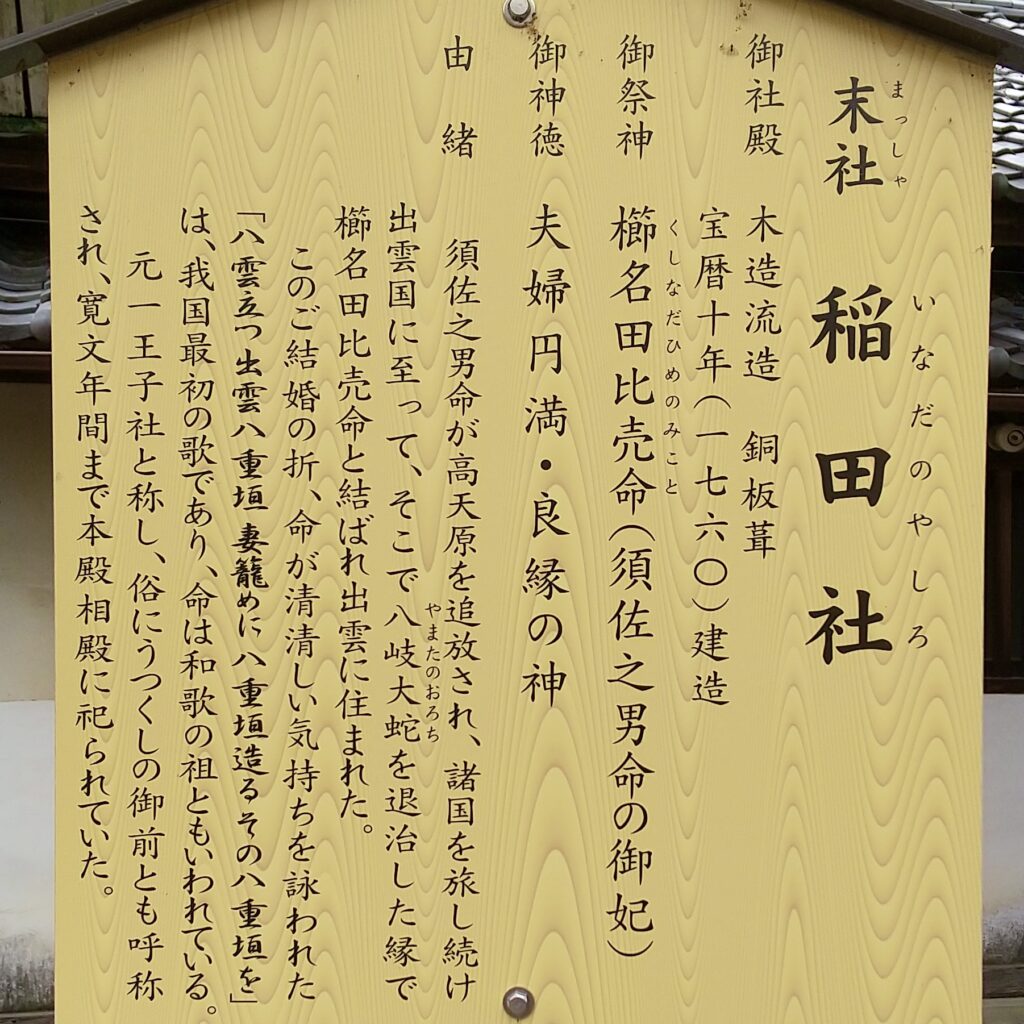 末社 稲田社
まっしゃ いなだのやしろ
御社殿 木造流造 銅板葺
宝暦十年(一七六〇)建造
御祭神 櫛名田比売命(須佐之男命の御妃)
くしなだひめのみこと
御神徳 夫婦円満・良縁の神
由緒
須佐之男命が高天原を追放され、諸国を旅し続け
出雲国に至って、そこで八岐大蛇を退治した縁で
やまたのおろち
櫛名田比売命と結ばれ出雲に住まれた。
このご結婚の折、命が清清しい気持ちを詠われた
「八雲立つ出雲八重垣妻籠めに八重垣造るその八重垣を」
は、我国最初の歌であり、命は和歌の祖ともいわれている。
元一王子社と称し、俗にうつくしの御前とも呼称
され、寛文年間まで本殿相殿に祀られていた。